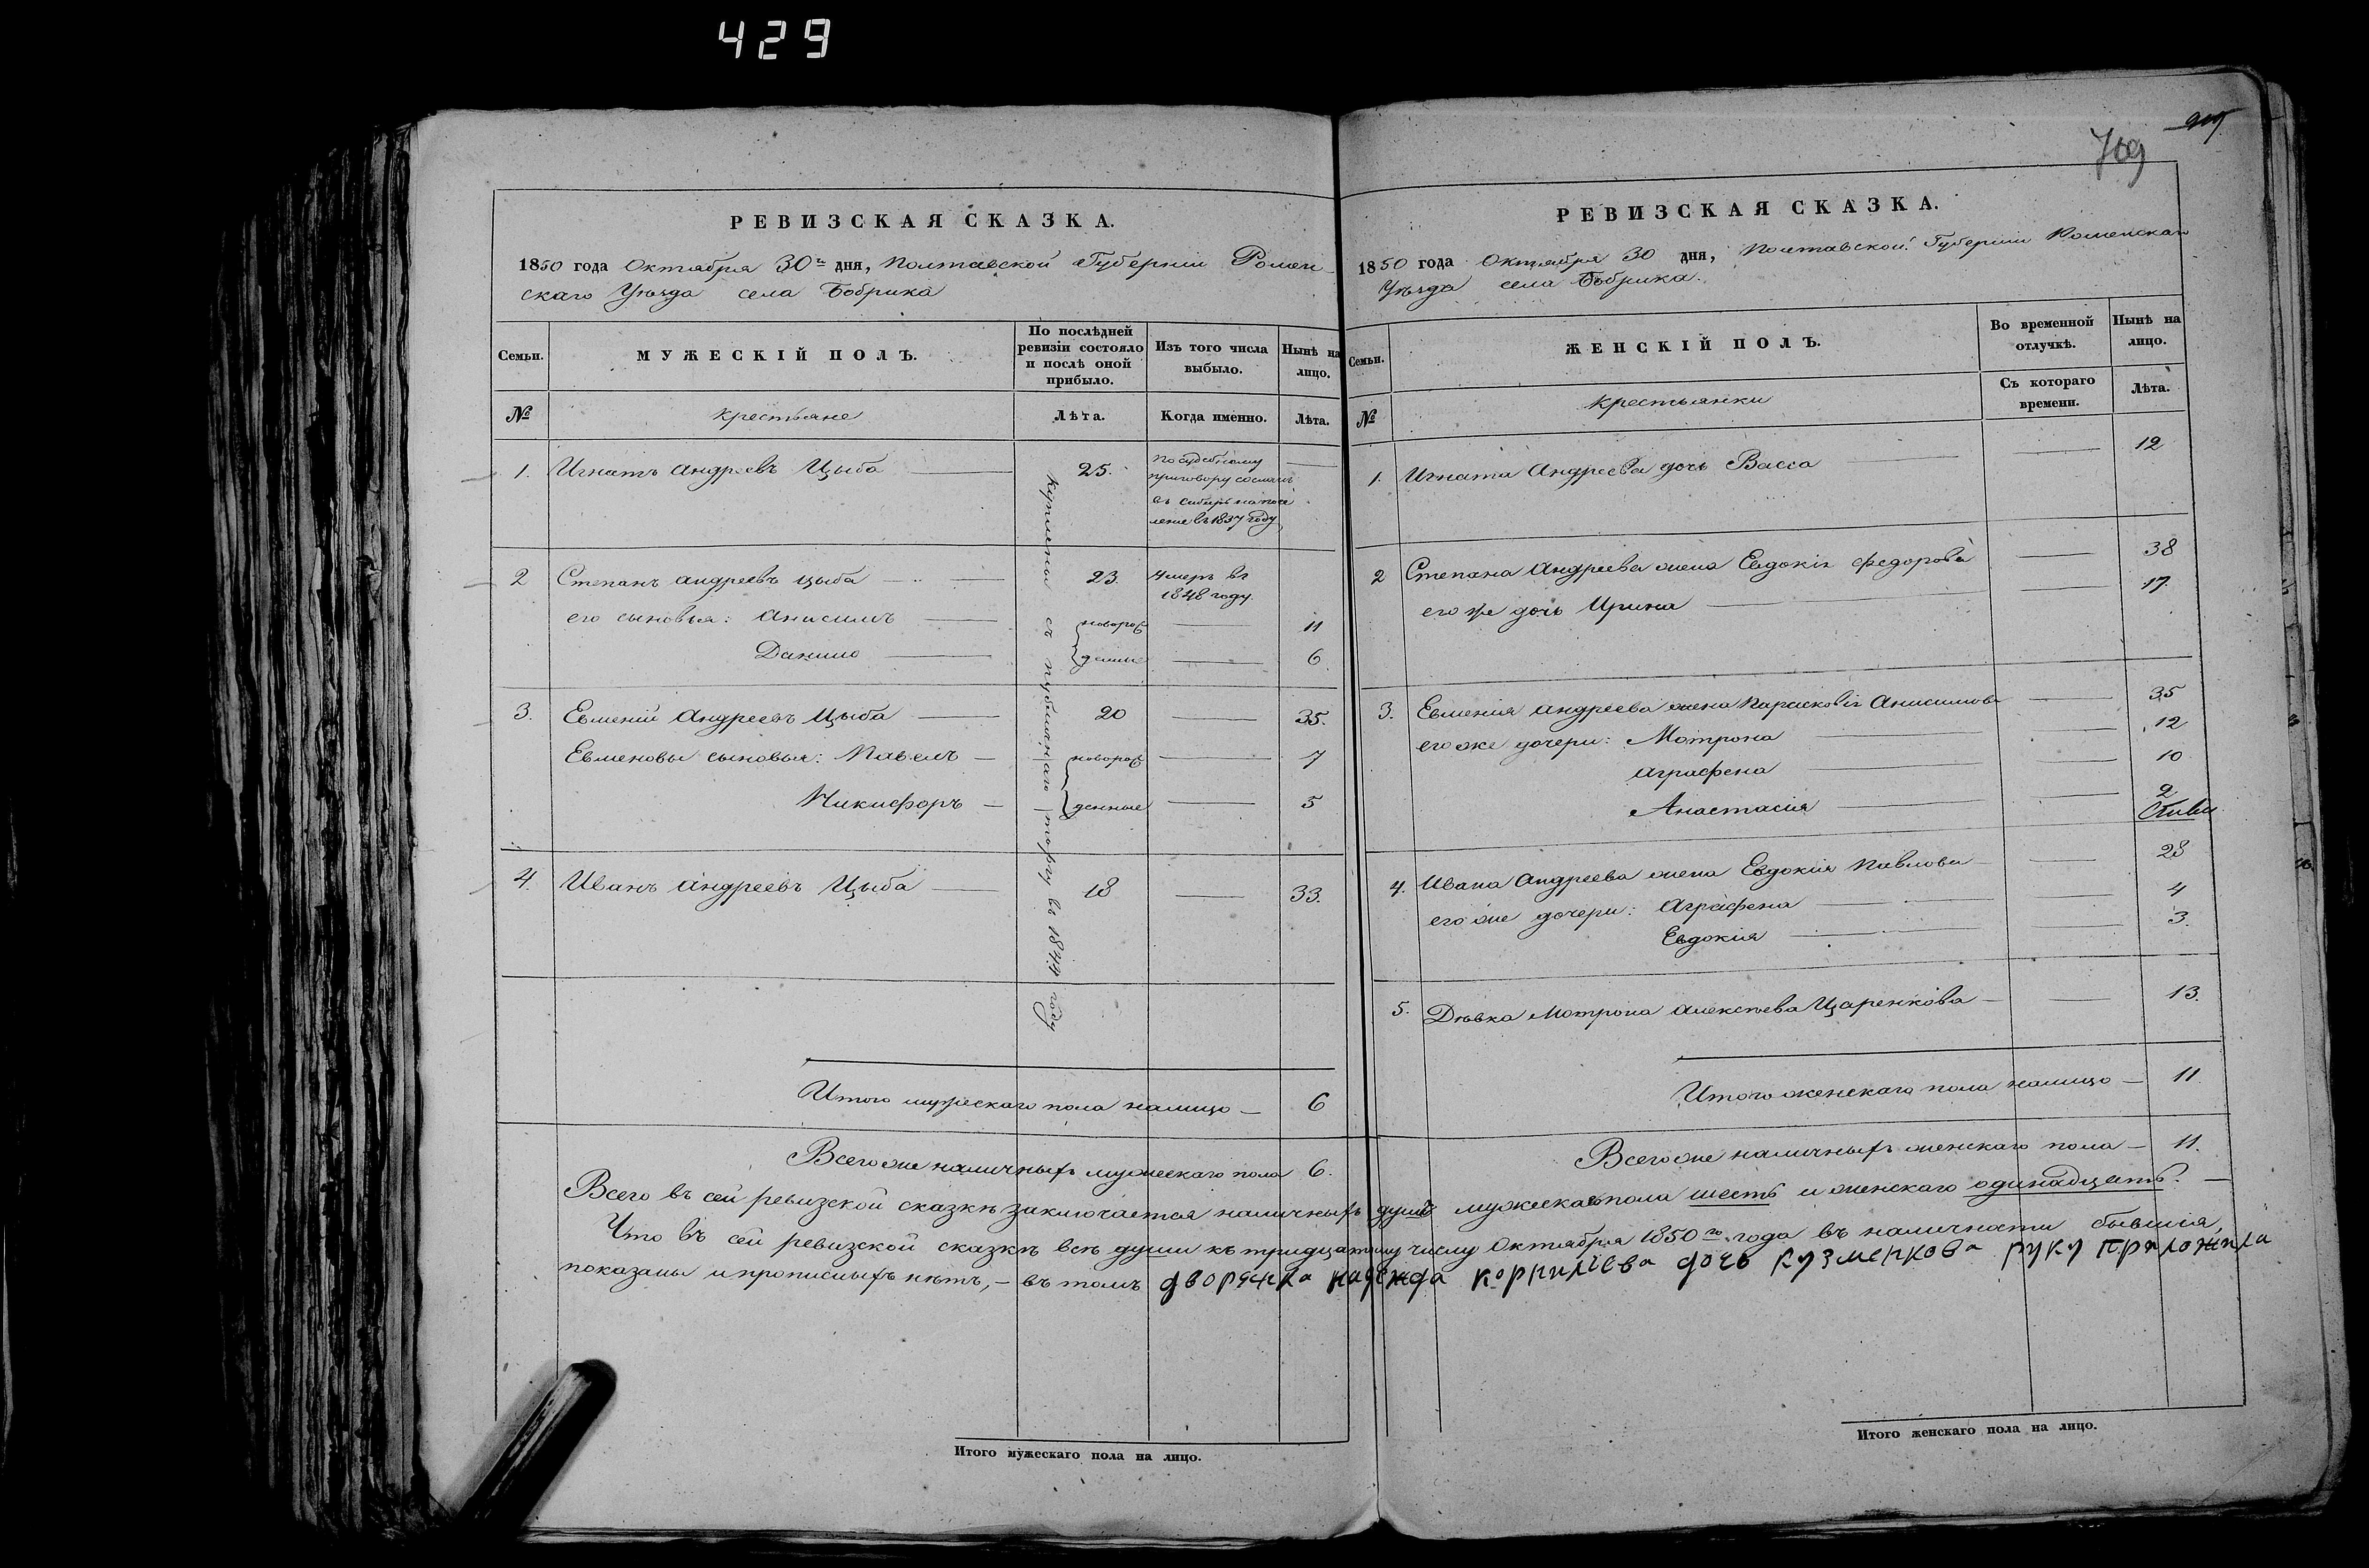 429
РЕВИЗСКАЯ СКАЗКА.
1850 года Октября 30го дня, Полтавской Губерніи Ромен-
скаго Уѣзда села Бобрика
Семьи.
МУЖЕСКІЙ ПОЛЪ.
По послѣдней ревизіи состояло и послѣ оной прибыло.
Изъ того числа выбыло.
Нынѣ на лицо.
№
Крестьяне
Лѣта.
Когда именно.
Лѣта.
1. Игнатъ Андреевъ Цыба 25. по судебному
приговору сосланъ
въ сибирь на посе
ленie въ 1837 году
2 Степанъ Андреевъ Цыба 23. Умеръ въ
1848 году.
его сыновья: Анисимъ новорож 11
Данило денные 6
3. Евменій Андреевъ Цыба 20 35.
Евменовы сыновья: Павелъ новорож 7
Никифоръ денные 5
4. Иванъ Андреевъ Цыба 18 33.
куплены съ публичнаго торгу въ 1844 году
Итого мужескаго пола налицо 6
Всего же наличныхъ мужескаго пола 6.
769
РЕВИЗСКАЯ СКАЗКА.
1850 года Октября 30 дня, Полтавской Губерніи Роменскаго
Уѣзда села Бобрика.
Семьи.
ЖЕНСКІЙ ПОЛЪ.
Во временной отлучкѣ.
Нынѣ на лицо.
№
Крестьянки
Съ котораго времени.
Лѣта.
1. Игната Андреева дочь Васса 12
2 Степана Андреева жена Евдокія Федорова 38
его же дочь Ирина 17.
3. Евменія Андреева жена Парасковія Анисимова 35
его же дочери: Мотрона 12
Аграфена 10
Анастасія 2
4. Ивана Андреева жена Евдокія Павлова 28
его же дочери: Аграфена 4
Евдокія 3.
5. Дѣвка Мотрона Алексѣева Царенкова 13.
Итого женскаго пола налицо 11.
Всего же наличныхъ женскаго пола 11.
Всего въ сей ревизской сказкѣ заключается наличныхъ душъ мужескаго пола шесть и женскаго одинадцать.
Что въ сей ревизской сказкѣ всѣ души къ тридцатому числу Октября 1850го года въ наличности бывшія,
показаны и прописныхъ нѣтъ, въ томъ дворянка надежда корнилiева дочь кузменкова руку приложила
Итого мужескаго пола на лицо.
Итого женскаго пола на лицо.